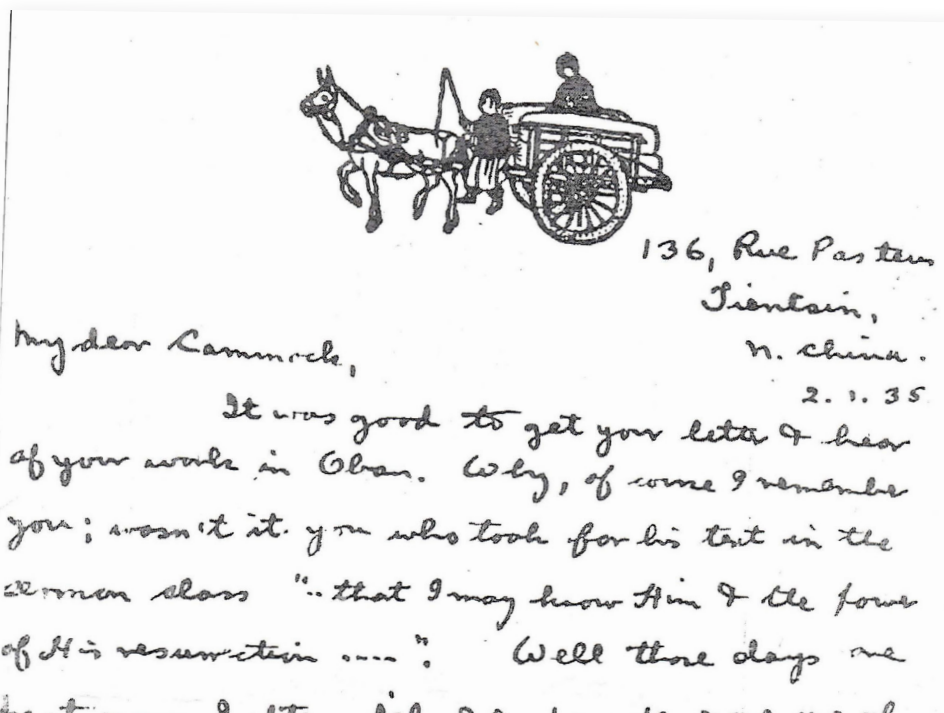 136, Rue Pasteur
Tientsin,
N. China.
2.1.35
My dear Cammock,
It was good to get your letter & hear
of your work in Oban. Why, of course I remember
you; wasn't it you who took for his text in the
sermon class "..that I may know Him & the power
of His resurrection ....". Well those days are